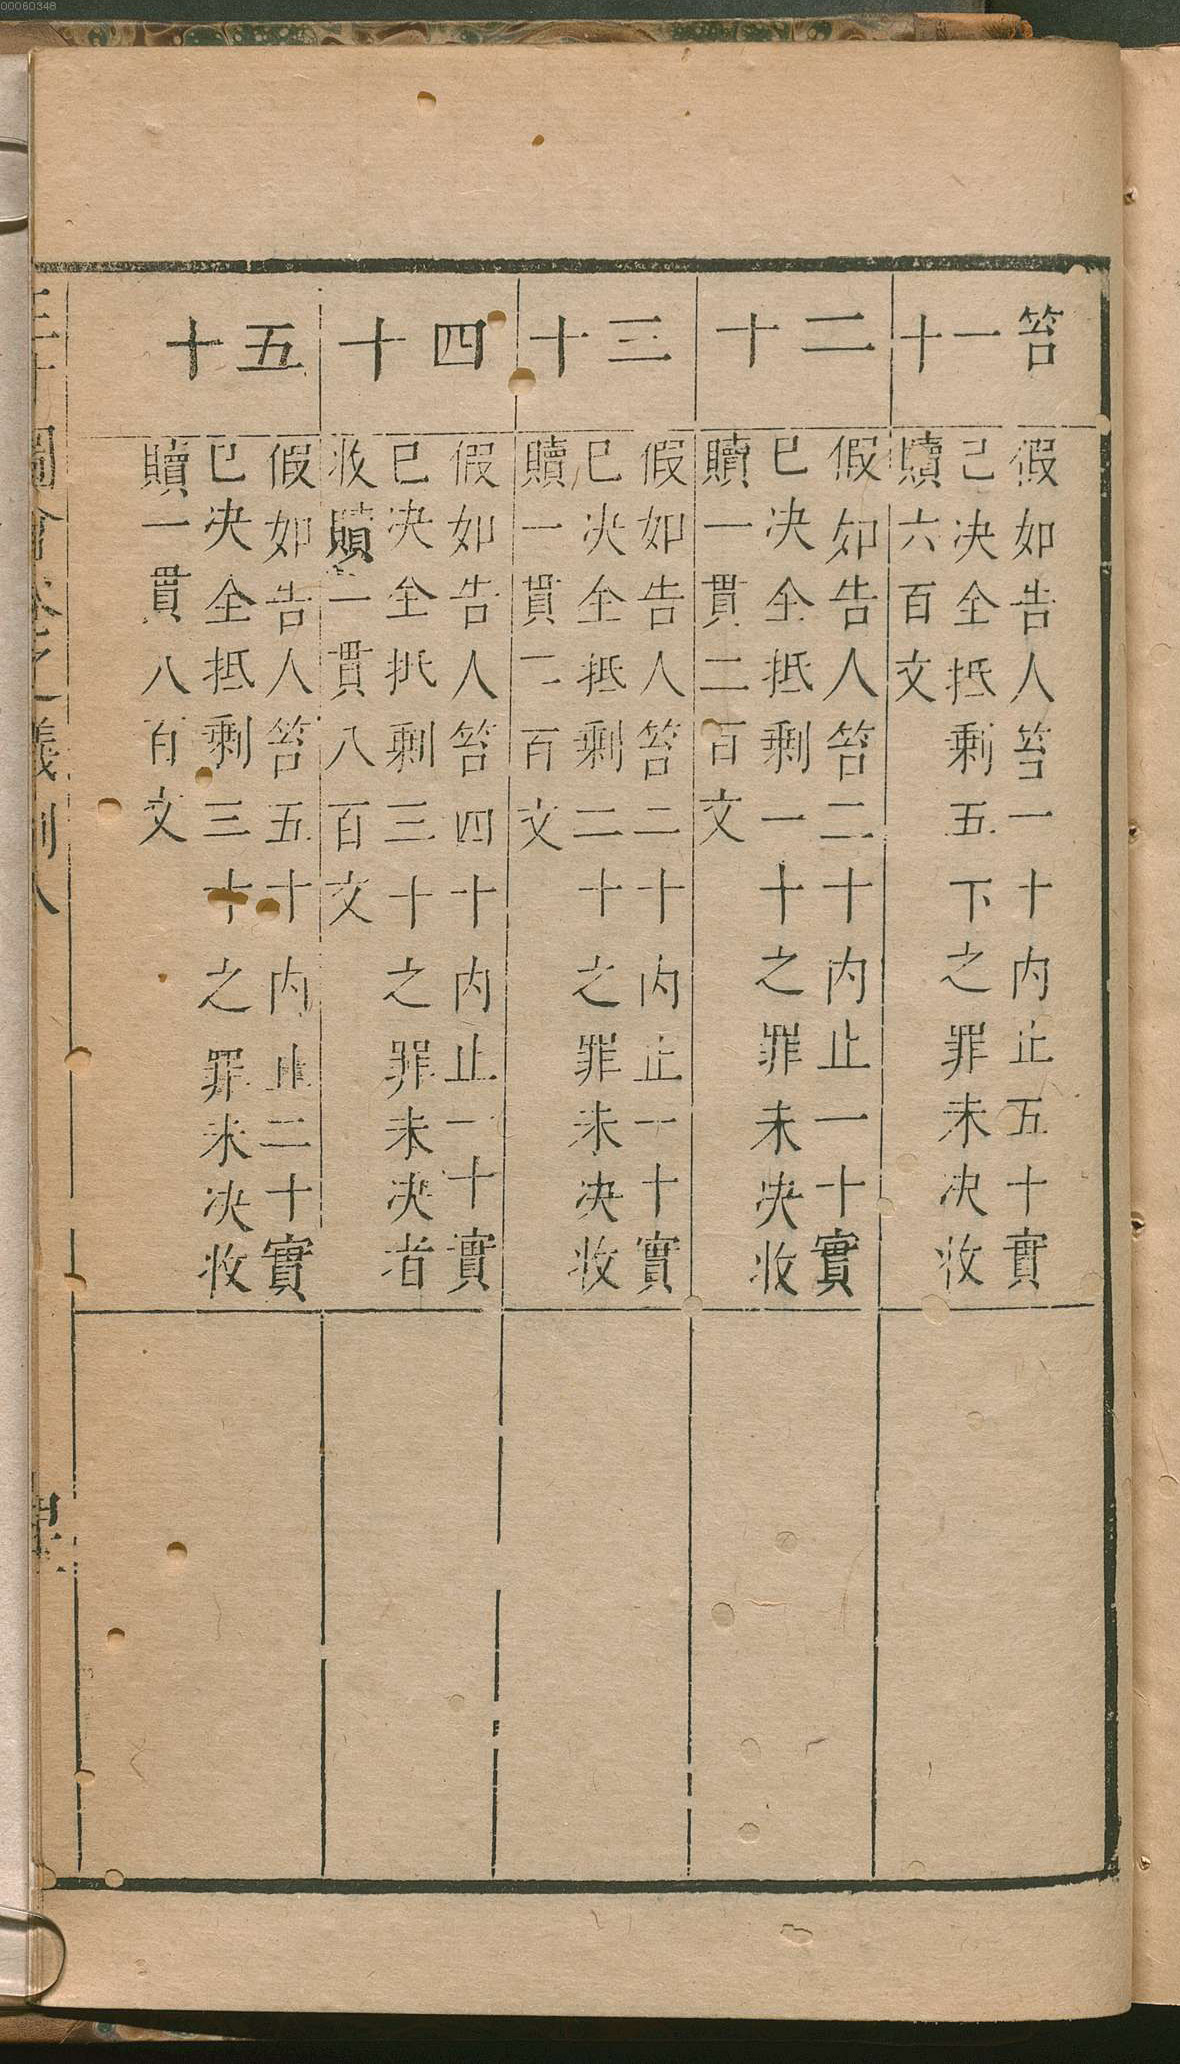 笞
一十
假如告人笞一十內止五十實
已决全抵剩五下之罪未决收
贖六百文
二十
假如告人笞二十內止一十實
已决全抵剩一十之罪未决收
贖一貫二百文
三十
假如告人笞二十內止一十實
已决全抵剩二十之罪未决收
贖一貫二百文
四十
假如告人笞四十內止一十實
已决全抵剩三十之罪未决者
收贖一貫八百文
五十
假如告人笞五十內止二十實
已决全抵剩三十之罪未决收
贖一貫八百文
圖會
00060348